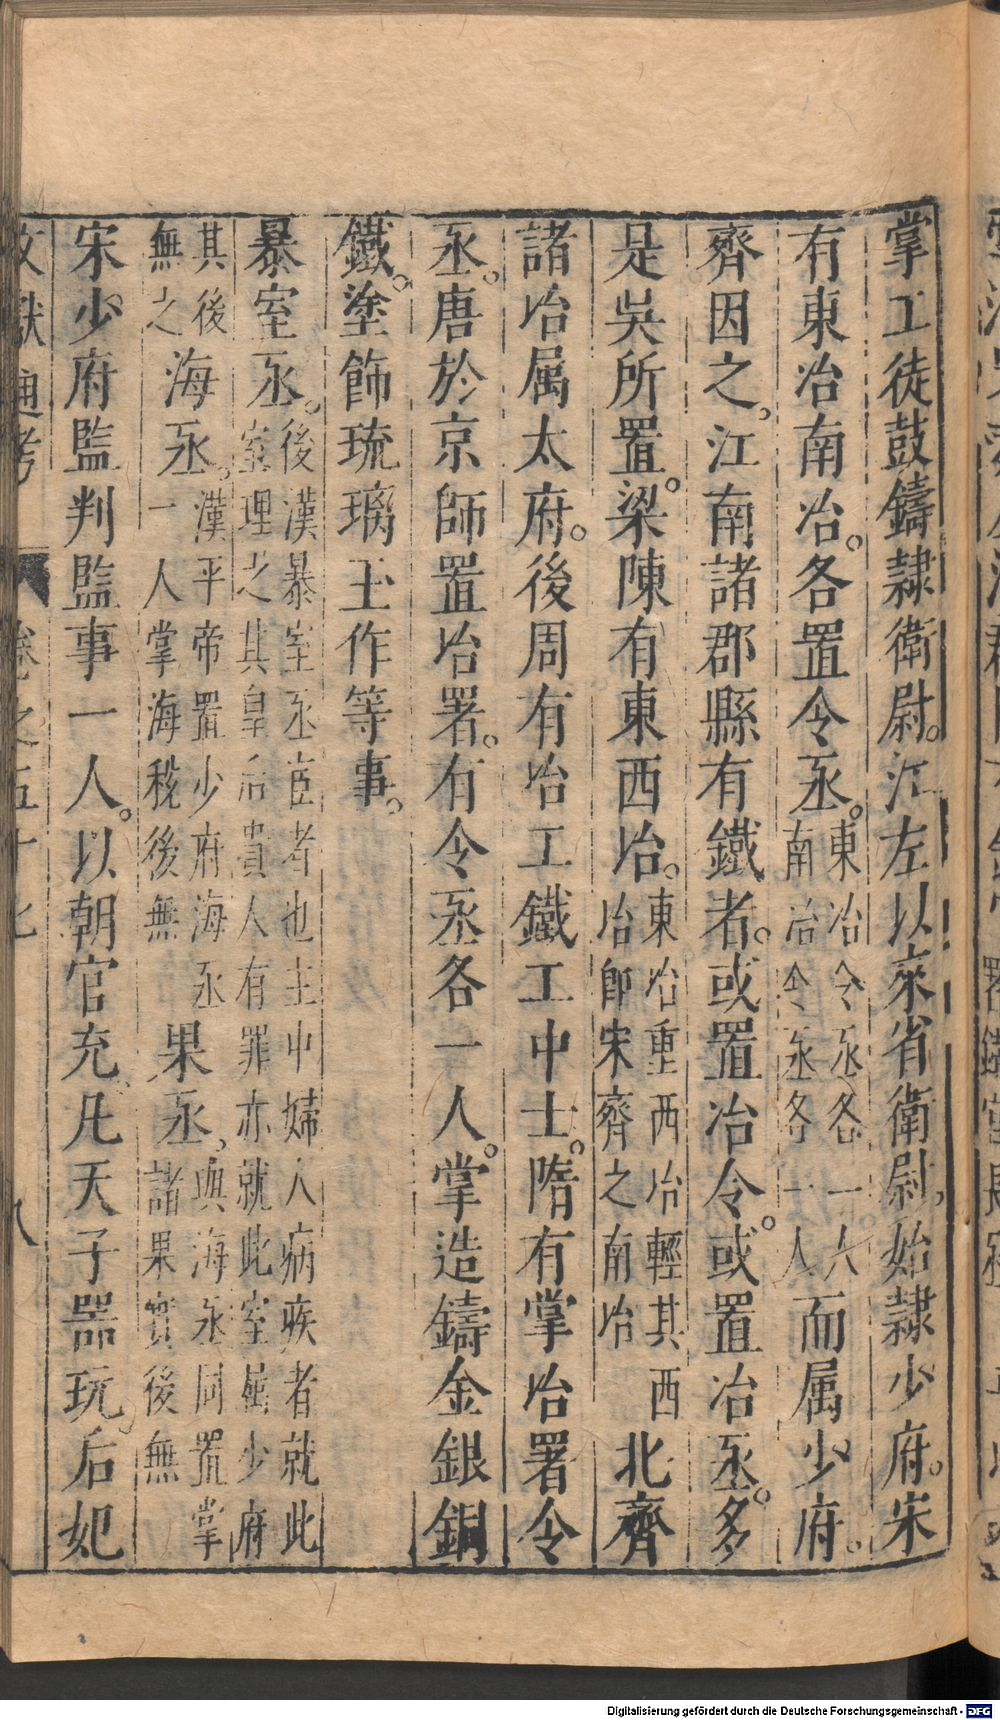 掌工徒鼓鑄隷衛尉。江左以來省衛尉,始隷少府。宋
有東冶南冶。各置令丞。東冶令丞各一人。南冶令丞各一人而属少府。
齊因之,江南諸郡縣有鐵者。或置冶令。或置冶丞。多
是吳所置。梁陳有東西冶。東冶重西冶輕其西冶卽宋齊之南冶北齊
諸冶属太府。後周有冶工鐵工中士。隋有掌冶署令
丞。唐於京師置冶署。有令丞各一人。掌造鑄金銀銅
鐵。塗飾琉璃玉作等事。
暴室丞。後漢暴室丞宦者也主中婦人病疾者就此室理之其皇后貴人有罪亦就此室屬少府
其後無之海丞。漢平帝置少府海丞一人掌海稅後無果丞,與海丞同置掌諸果實後無
宋少府監判監事一人。以朝官充凡天子器玩后妃
文獻通考 卷之五十七 八
Digitalisierung gefördert durch die Deutsche Forschungsgemeinschaft - DFG